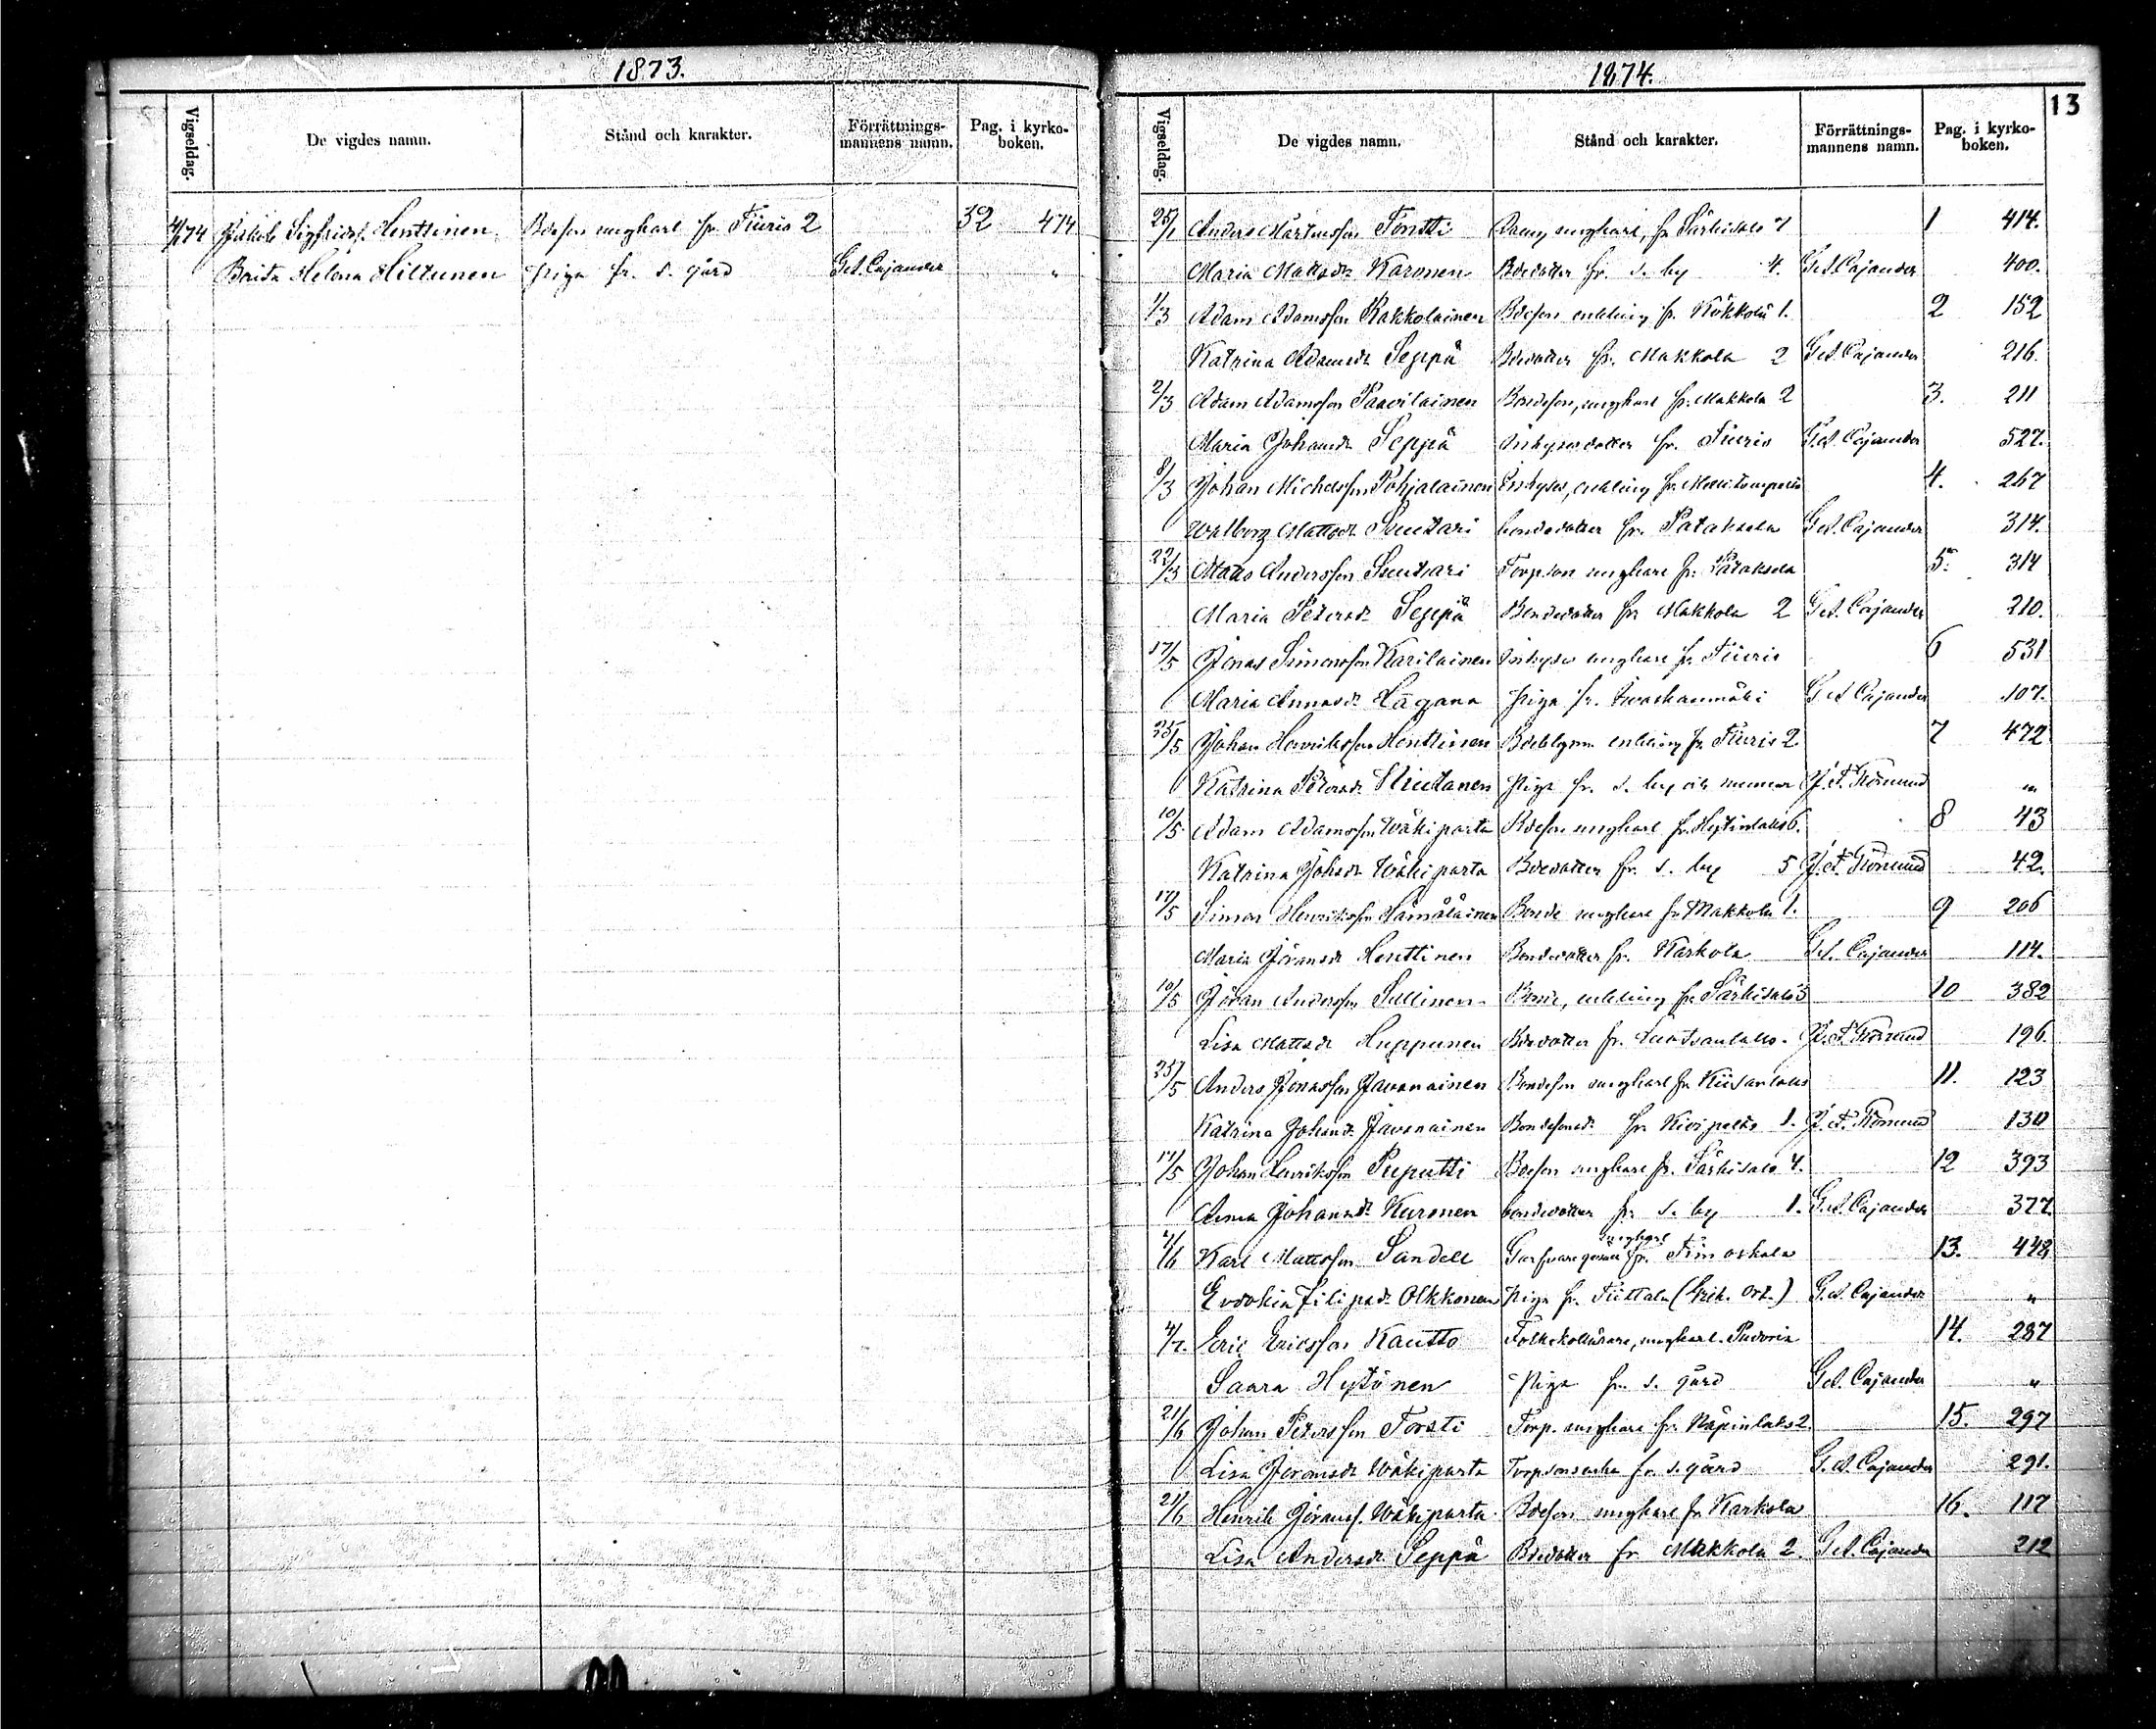 1873.
Vigseldag.
De vigdes namn.
Stånd och karakter.
Förrättnings-mannens namn.
Pag. i kyrko-boken.
4/1 74 Jakob Sigfridss. Henttinen Bdeson ungkarl fr. Tiuris 2 32 474
Brita Helena Hiltunen piga fr. s. gård G. A. Cajander "
1874.
13
Vigseldag.
De vigdes namn.
Stånd och karakter.
Förrättnings-mannens namn.
Pag. i kyrko-boken.
25/1 Anders Mårtensson Torstti ungkarl, fr Särkisalo 7 1 414.
Maria Mattsdr Karonen Bdedotter fr. s. by 4. G. A. Cajander 400.
1/3 Adam Adamsson Kakkolainen Bdeson enkling fr. Kökkölä 1. 2 152
Katrina Adamsdr Seppä Bdedotter fr. Makkola 2 G. A. Cajander 216.
2/3 Adam Adamsson Paavilainen Bondeson, ungkarl fr. Makkola 2 3. 211
Maria Johansdr Seppä Inhysesdotter fr. Tiuris G. A. Cajander 527.
8/3 Johan Michelsson Pohjalainen Inhyses, enkling fr. 4. 267
Walborg Mattsdr Suutari bondedotter fr. Pataksela G. A. Cajander 314.
22/3 Mats Andersson Suutari Torpson ungkarl fr. Pataksela 5. 314
Maria Petersdr Seppä Bondedotter fr Makkola 2 G. A. Cajander 210.
17/5 Jonas Simonsson Karilainen Inhyses ungkarl fr Tiuris 6 531
Maria Annasdr Hägana piga fr. Iivashanmäki G. A. Cajander 107.
25/5 Johan Henriksson Henttinen enkling fr Tiuris 2 7 472
Katrina Petersdr Hiutanen Piga fr. s. by och nummer "
10/5 Adam Adamsson Wäkiparta Bdeson ungkarl fr. Hytinlaks 6. 8 43
Katrina Johsdr Wäkiparta Bdedotter fr. s. by 5 42.
17/5 Simon Henriksson Hämäläinen Bonde ungkarl fr Makkola 1. 9 206
Maria Göransdr Henttinen Bondedotter fr. Karkola G. A. Cajander 114.
10/5 Johan Andersson Sullinen Bonde, enkling fr Särkisalo 5 10 382
Lisa Mattsdr Huppunen Bdedotter fr. 196.
25/5 Anders Jonasson Javanainen Bondeson ungkarl fr Kiisanlaks 11. 123
Katrina Johansdr Javanainen Bondesonsdr fr Kivipelto 1. 130
17/5 Johan Henriksson Puputti Bdeson ungkarl fr. Särkisalo 4. 12 393
Anna Johansdr Kuronen bondedotter fr. s. by 1. G. A. Cajander 377.
ungkarl
/6 Karl Mattsson Sandell fr. Timoskala 13. 448
Evdokia Filipsdr Olkkonen Piga fr. Tiittala (Grik. Ort.) G. A. Cajander "
4/7. Eric Ericsson Kautto Folkskollärare, ungkarl. Pukoria 14. 287
Saara Hytönen Piga fr. s. gård G. A. Cajander "
21/6 Johan Petersson Torsti Torp. ungkarl fr. Käpinlaks 2. 15. 297
Lisa Göransdr Wäkiparta Torpsonsenka fr. s. gård G. A. Cajander 291.
21/6 Henrik Görans. Wäkiparta Bdeson ungkarl fr Karkola 16. 117
Lisa Andersdr Seppä Bdedotter fr. Makkola 2. G. A. Cajander 212